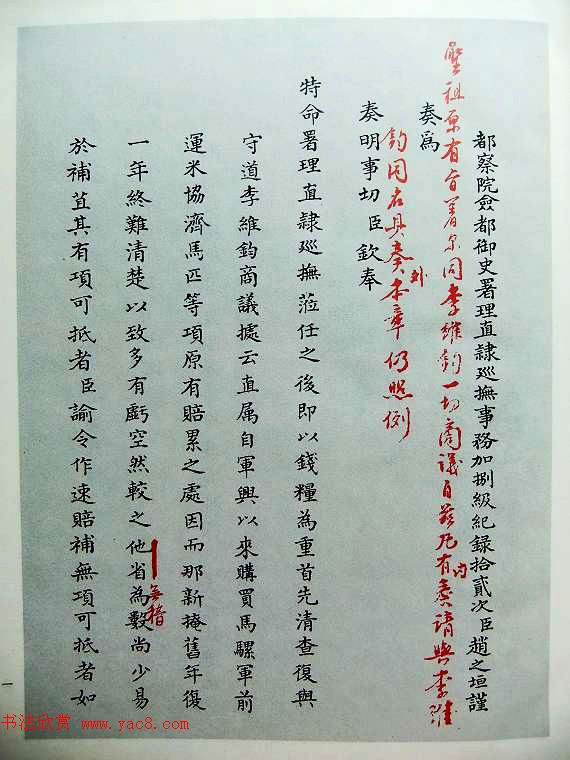 都察院僉都御史署理直隷廵撫事務加捌級紀錄拾貳次臣趙之垣謹
聖祖原有旨着尔同李維鈞一切商議自茲凡有內奏請與李維
奏為
鈞同名具奏外本章仍照例
奏明事切臣欽奉
特命署理直隷廵撫蒞任之後即以錢糧為重首先清查復與
守道李維鈞商議據云直属自軍興以來購買馬騾軍前
運米協濟馬匹等項原有賠累之處因而那新掩舊年復
一年終難清楚以致多有虧空然較之他省為數尚少易
無稽
於補苴其有項可抵者臣諭令作速賠補無項可抵者如
一
书法欣赏 www.yac8.com